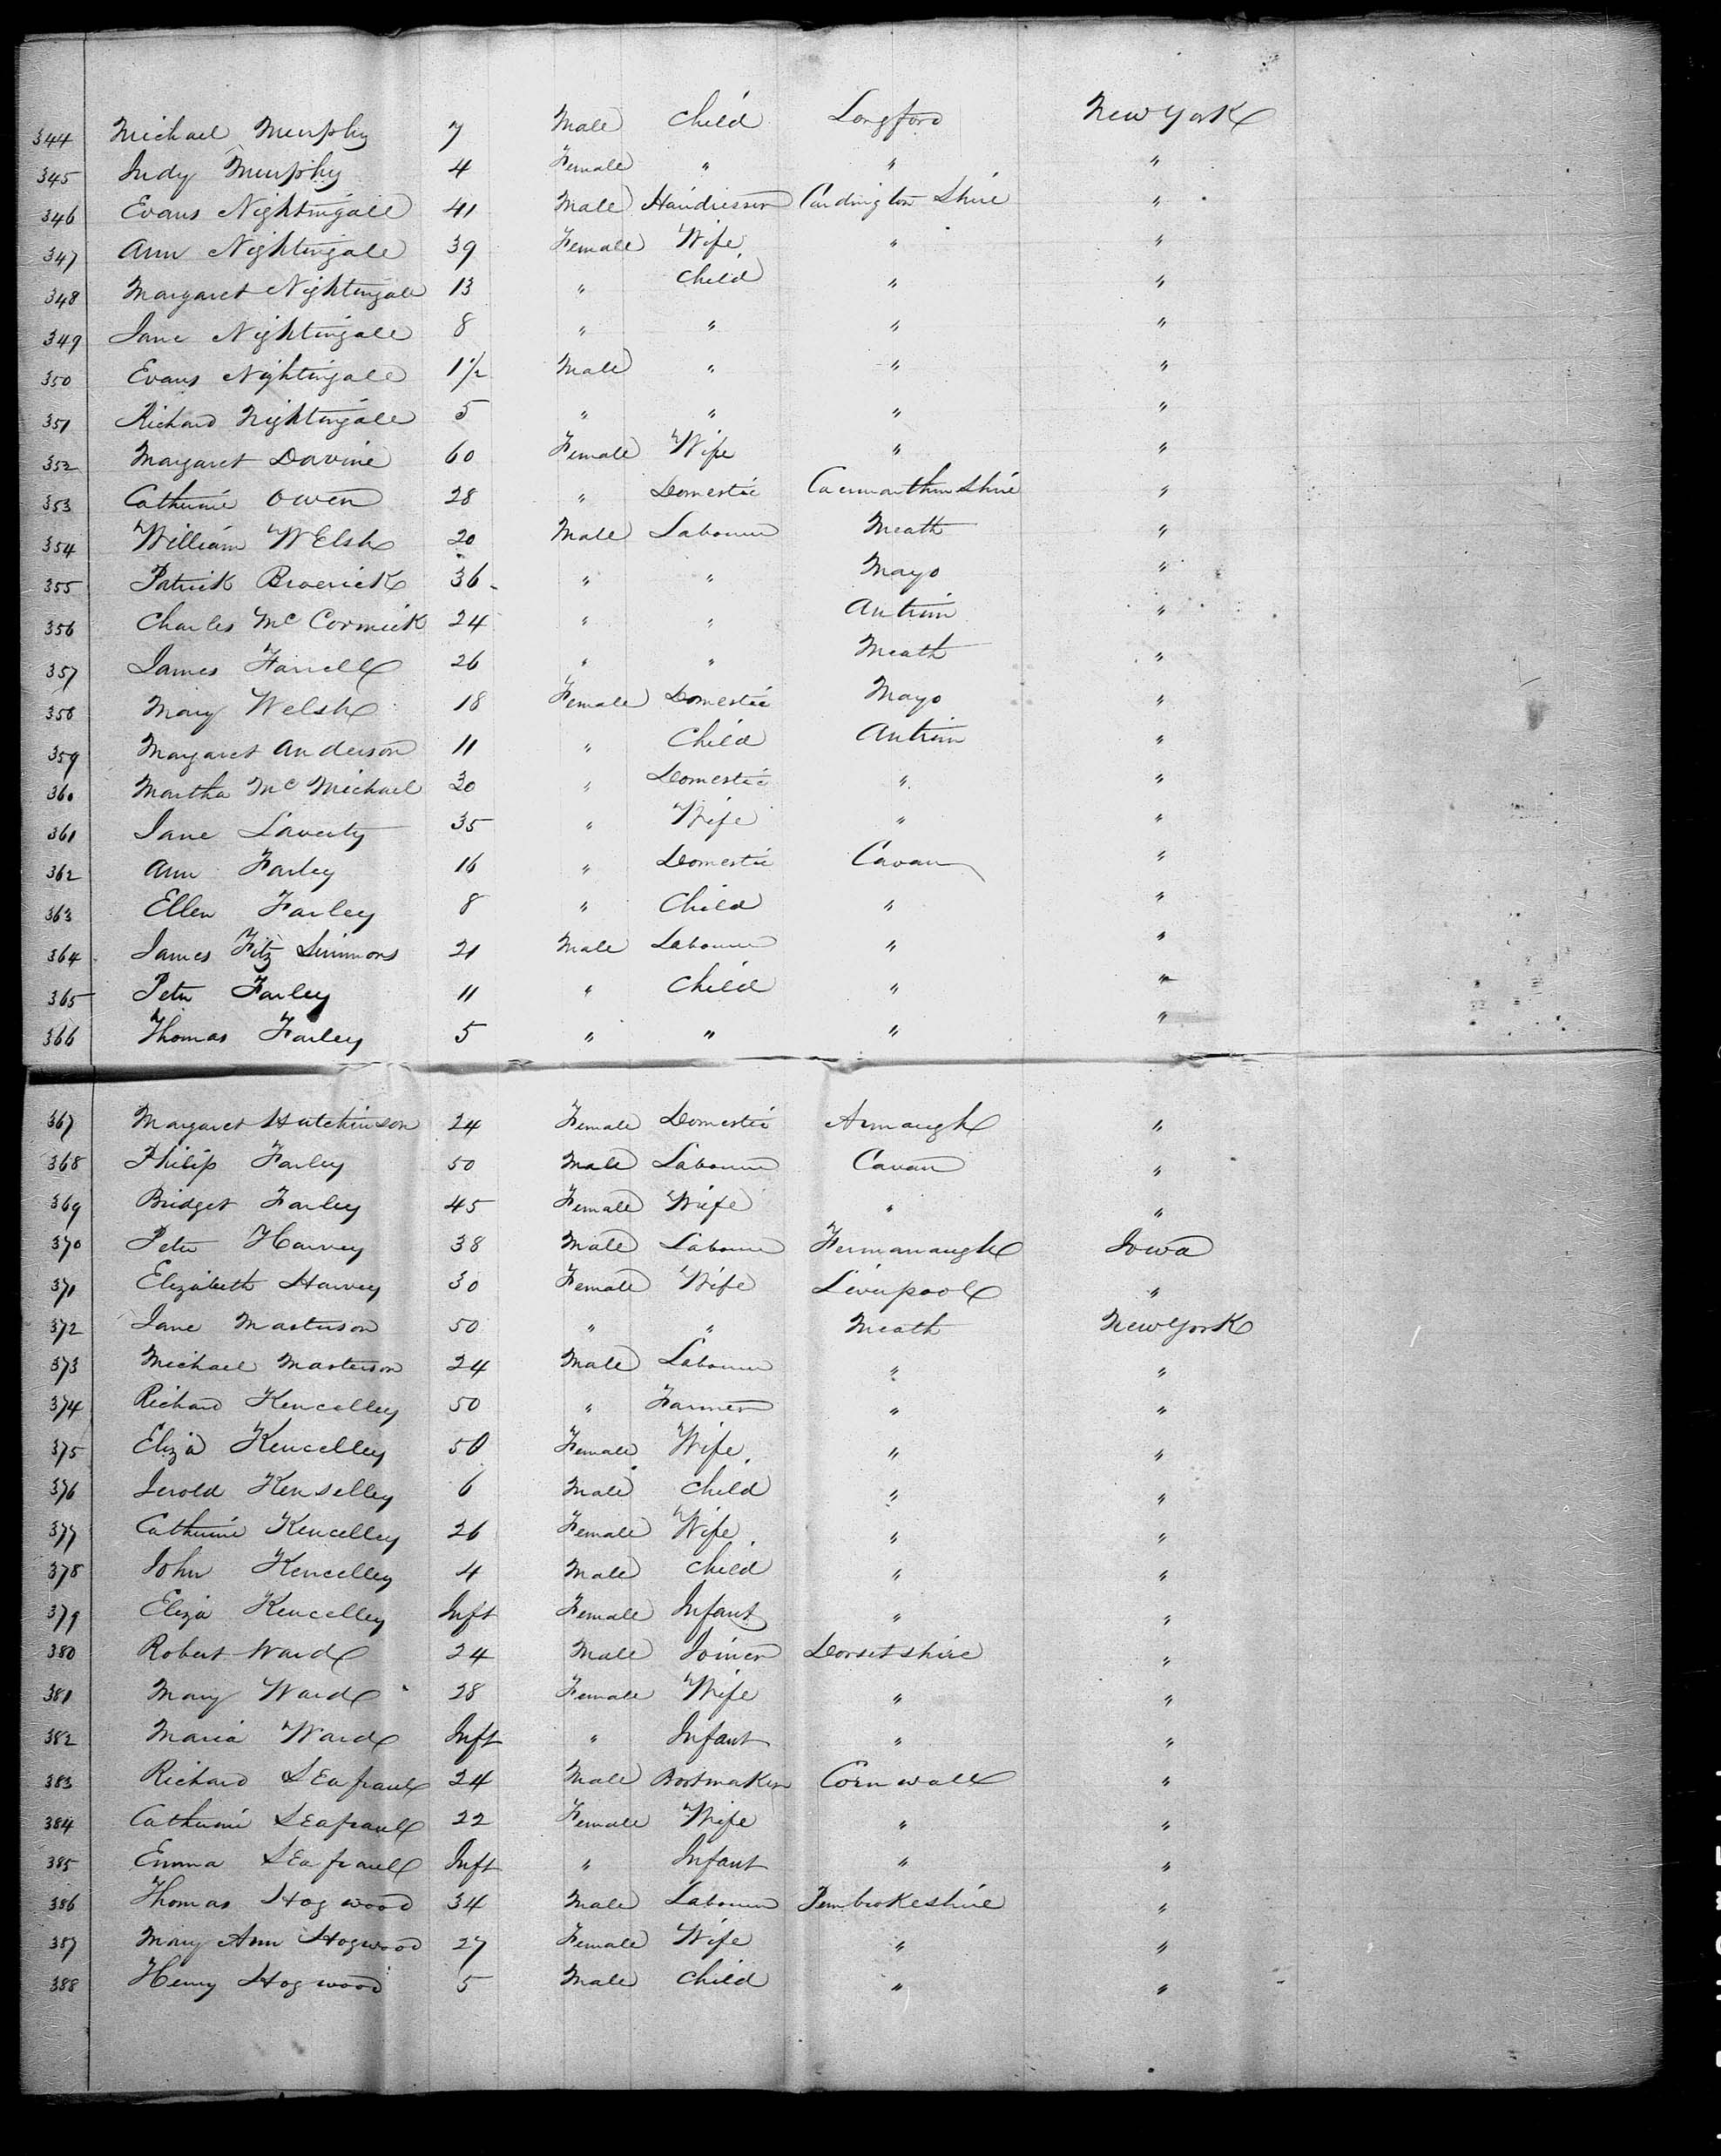 344 Michael Murphy 7 Male Child Longford New York
345 Judy Murphy 4 Female " " "
346 Evans Nightingale 41 Male Hairdresser Cardington Shire "
347 Ann Nightingale 39 Female Wife " "
348 Margaret Nightingale 13 " Child " "
349 Jane Nightingale 8 " " " "
350 Evans Nightingale 1½ Male " " "
351 Richard Nightingale 5 " " " "
352 Margaret Davine 60 Female Wife " "
353 Catherine Owen 28 " Domestic Caermarthen Shire "
354 William Welsh 20 Male Labourer Meath "
355 Patrick Broerick 36 " " Mayo "
356 Charles Mc Cormick 24 " " Antrim "
357 James Farrell 26 " " Meath "
358 Mary Welsh 18 Female Domestic Mayo "
359 Margaret Anderson 11 " Child Antrim "
360 Martha Mc Michael 30 " Domestic " "
361 Jane Laverty 35 " Wife " "
362 Ann Farley 16 " Domestic Cavan "
363 Ellen Farley 8 " Child " "
364 James Fitz Simmons 21 Male Labourer " "
365 Peter Farley 11 " Child " "
366 Thomas Farley 5 " " " "
367 Margaret Hutchinson 24 Female Domestic Armaugh "
368 Philip Farley 50 Male Labourer Cavan "
369 Bridget Farley 45 Female Wife " "
370 Peter Harvey 38 Male Labourer Fermanaugh Iowa
371 Elizabeth Harvey 30 Female Wife Liverpool "
372 Jane Masterson 50 " " Meath New York
373 Michael Masterson 24 Male Labourer " "
374 Richard Kencelley 50 " Farmer " "
375 Eliza Kencelley 50 Female Wife " "
376 Jerold Kenselley 6 Male Child " "
377 Catherine Kencelley 26 Female Wife " "
378 John Kencelley 4 Male Child " "
379 Eliza Kencelley Inft Female Infant " "
380 Robert Ward 24 Male Joiner Dorsetshire "
381 Mary Ward 28 Female Wife " "
382 Maria Ward Inft " Infant " "
383 Richard 24 Male Bootmaker Cornwall "
384 Catherine 22 Female Wife " "
385 Emma Inft " Infant " "
386 Thomas Hogwood 34 Male Labourer Pembrokeshire "
387 Mary Ann Hogwood 27 Female Wife " "
388 Henry Hogwood 5 Male Child " "